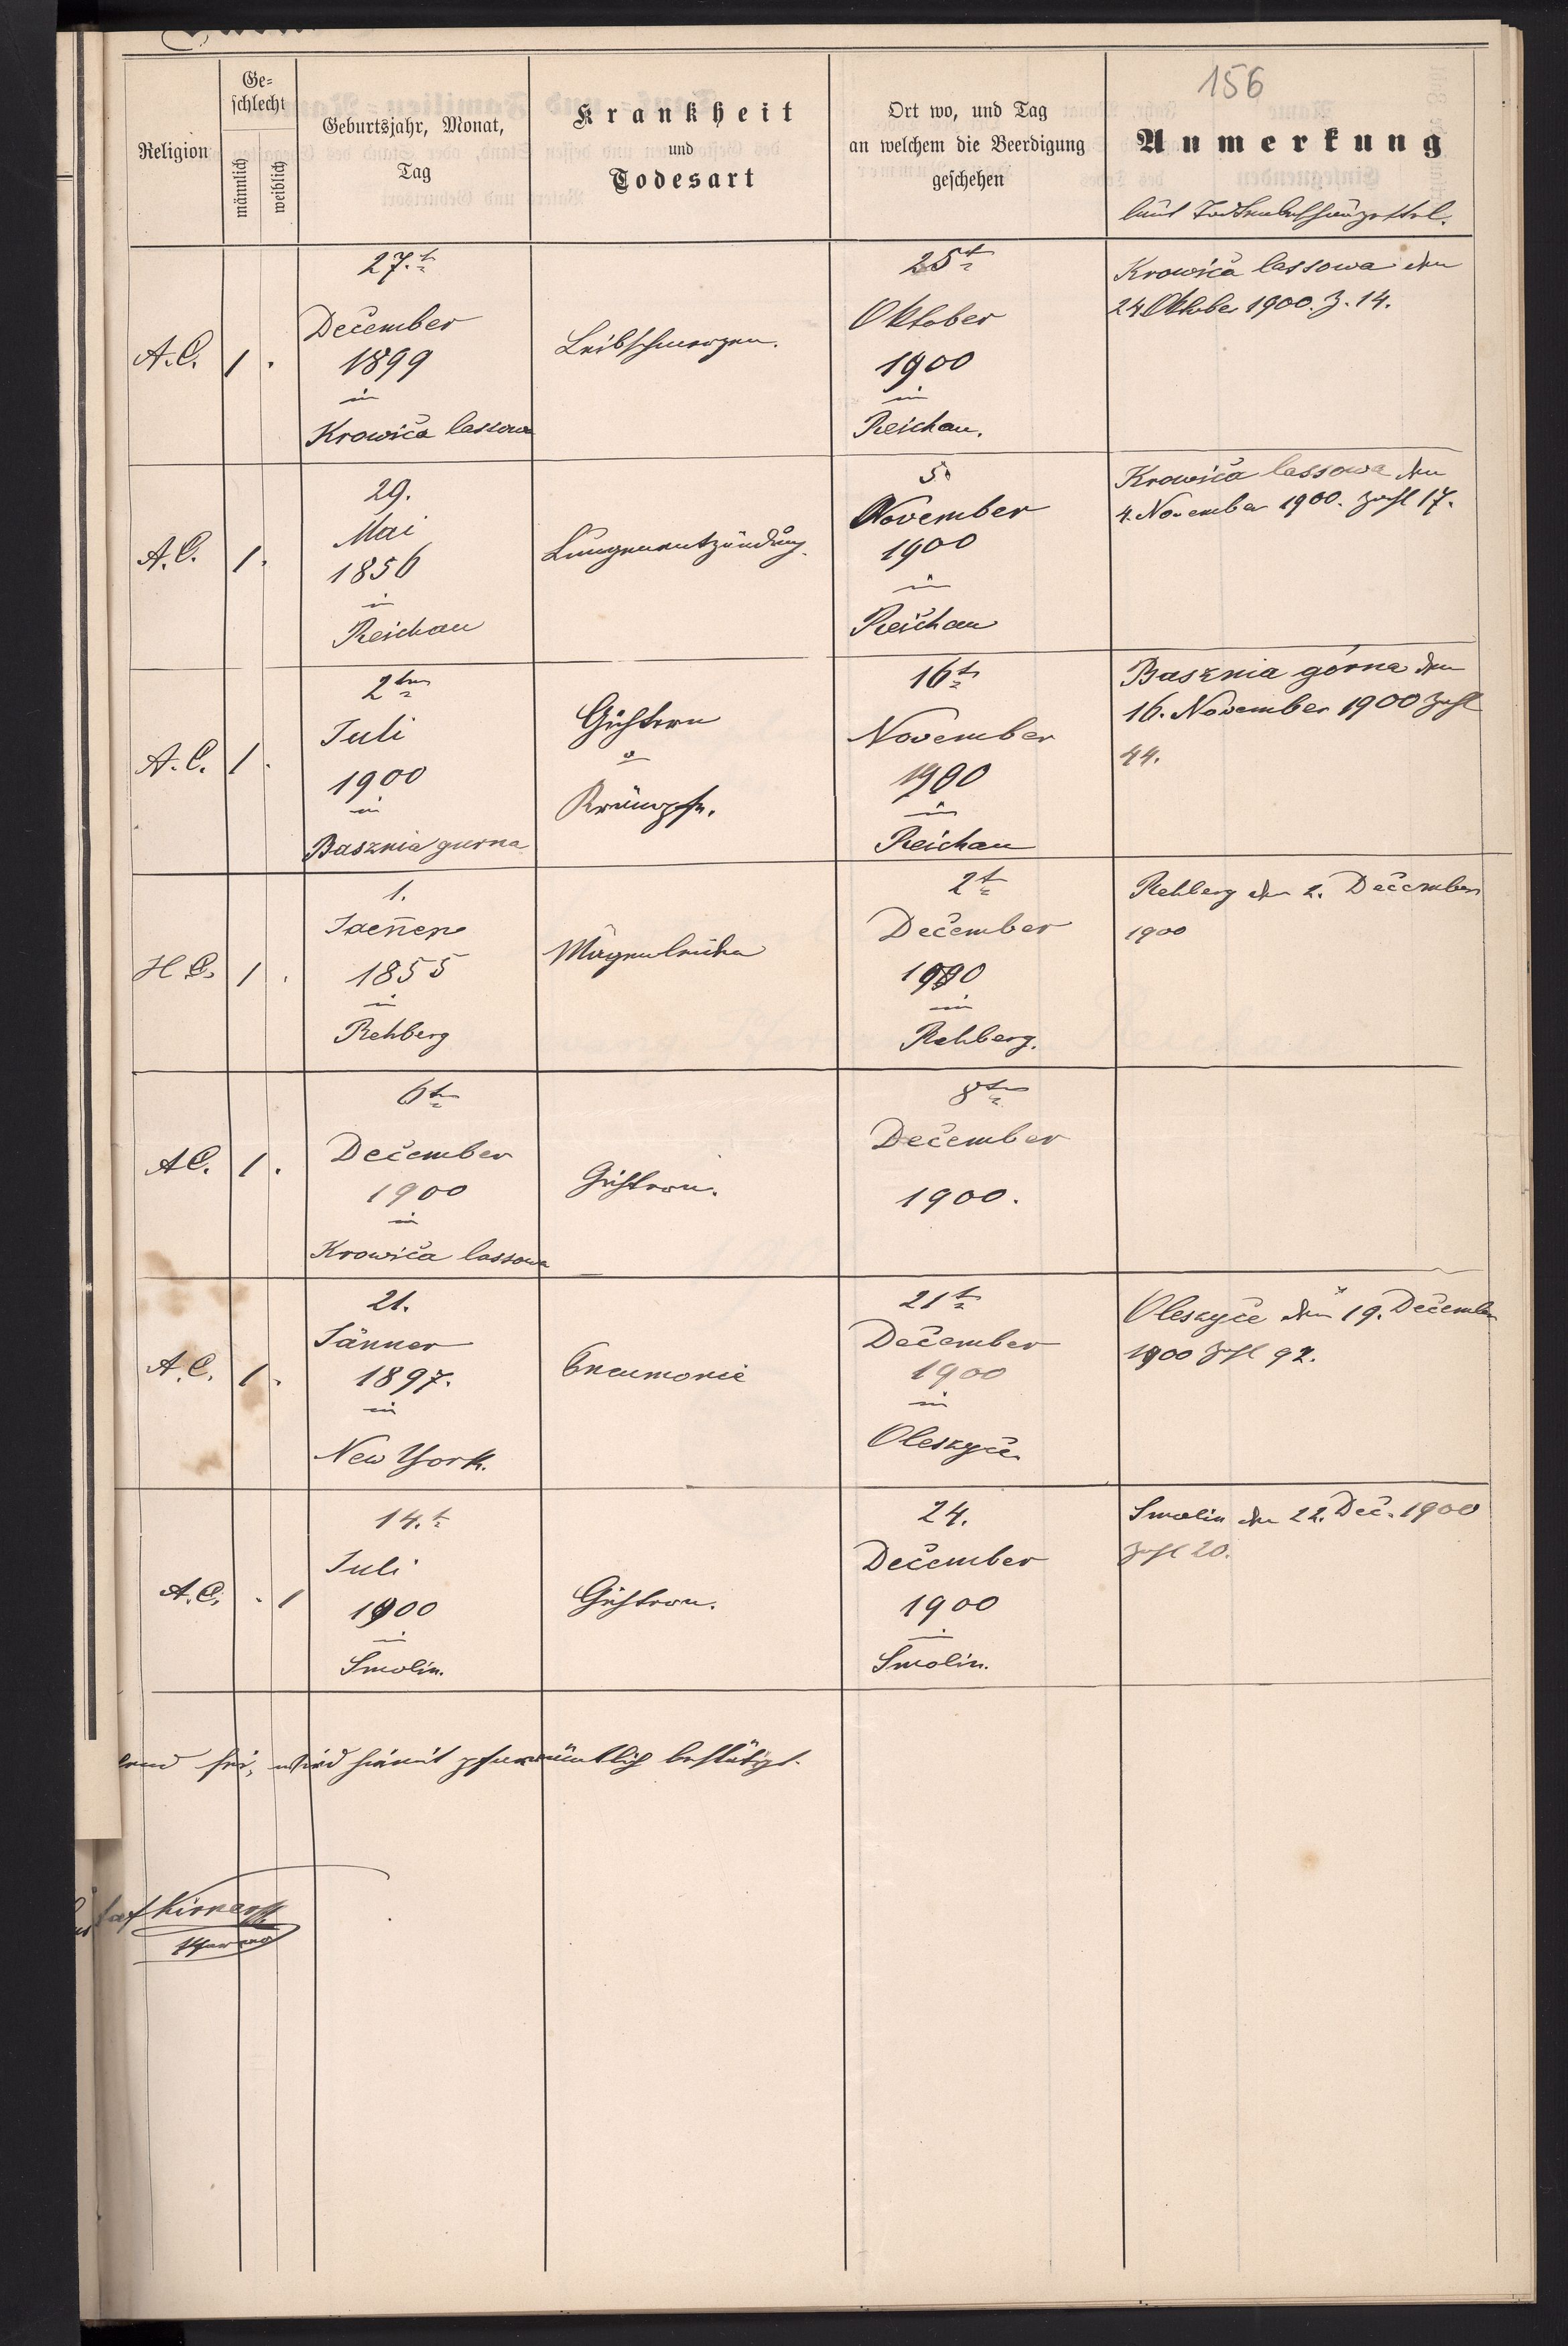 156
Religion
Ge-
schlecht
männlich
weiblich
Geburtsjahr, Monat,
Tag
Krankheit
und
Todesart
Ort wo, und Tag
an welchem die Beerdigung
geschehen
Anmerkung
laut Todtenbeschauzettel.
A.C.
1 .
27.t
December
1899
in
Krowica lassowa
Leibschmerzen.
25t
Oktober
1900
in
Reichau.
Krowica lassowa den
24. Oktober 1900. Z. 14.
A.C.
1 .
29.
Mai
1856
in
Reichau
Lungenentzündung.
5.
November
1900
in
Reichau
Krowica lassowa den
4. November 1900. Zahl 17.
A.C.
1 .
2ten
Juli
1900
in
Basznia gurna
Gichtern
o
Krämpfe.
16t
November
1900
in
Reichau
Basznia górna den
16. November 1900 Zahl
44.
H C.
1 .
1.
Jaenner
1855
in
Rehberg
2t
December
1900
in
Rehberg.
Rehberg den 2. December
1900
A C.
1 .
6te
December
1900
in
Krowica lassowa
Gichtern.
8ten
December
1900.
A.C.
1 .
21.
Jänner
1897.
in
New York.
Pneumonie
21t
December
1900
in
Oleszyce
Oleszyce den 19. December
1900 Zahl 92.
A.C.
. 1
14.t
Juli
1900
in
Smolin.
Gichtern.
24.
December
1900
in
Smolin.
Smolin den 22. Dec. 1900
Zahl 20.
sei, wird hiemit pfarrämtlich bestätigt.
Pfarrer